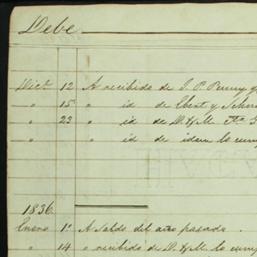 Debe
Dic.e 12 A recibido de J. P.
" 15 " id de Ebert y
" 22 " id de D. & M.
" " id de idem lo
1836.
Enero 1º A saldo del año pasado.
" 14 " recibido de D. & M. lo